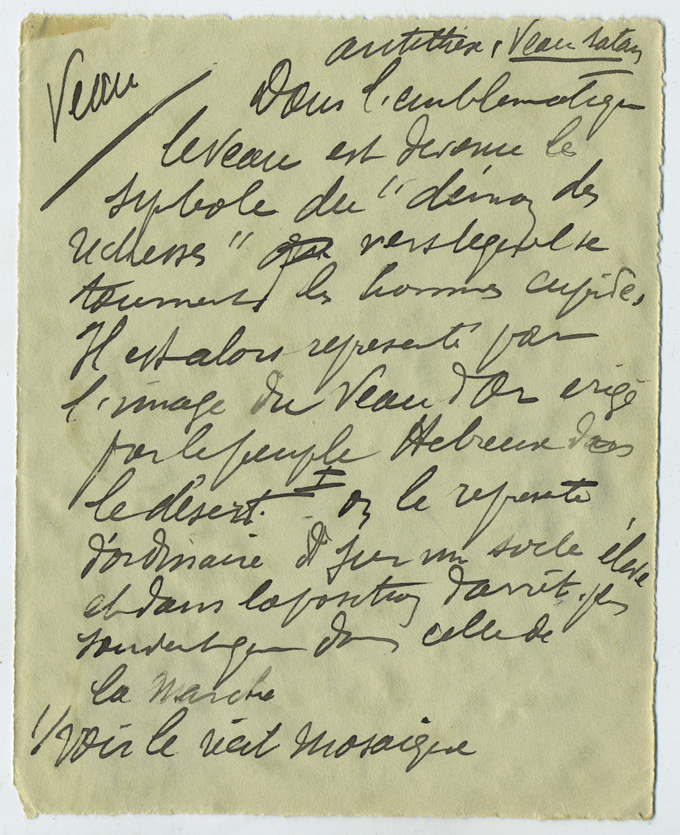 antithèse, Veau satan
Veau
Dans l'emblematique
le veau est devenu le
symbole du "démon des
richesses" vers lequel se
tournent les hommes cupides.
Il est alors representé par
l'image du Veau d'Or erigé
par le peuple Hebreux dans
le désert. I on le represente
d'ordinaire sur un socle élevé
et dans la position d'arrêt, plus
souvent que dans celle de
la marche
1/ Voir le récit Mosaique